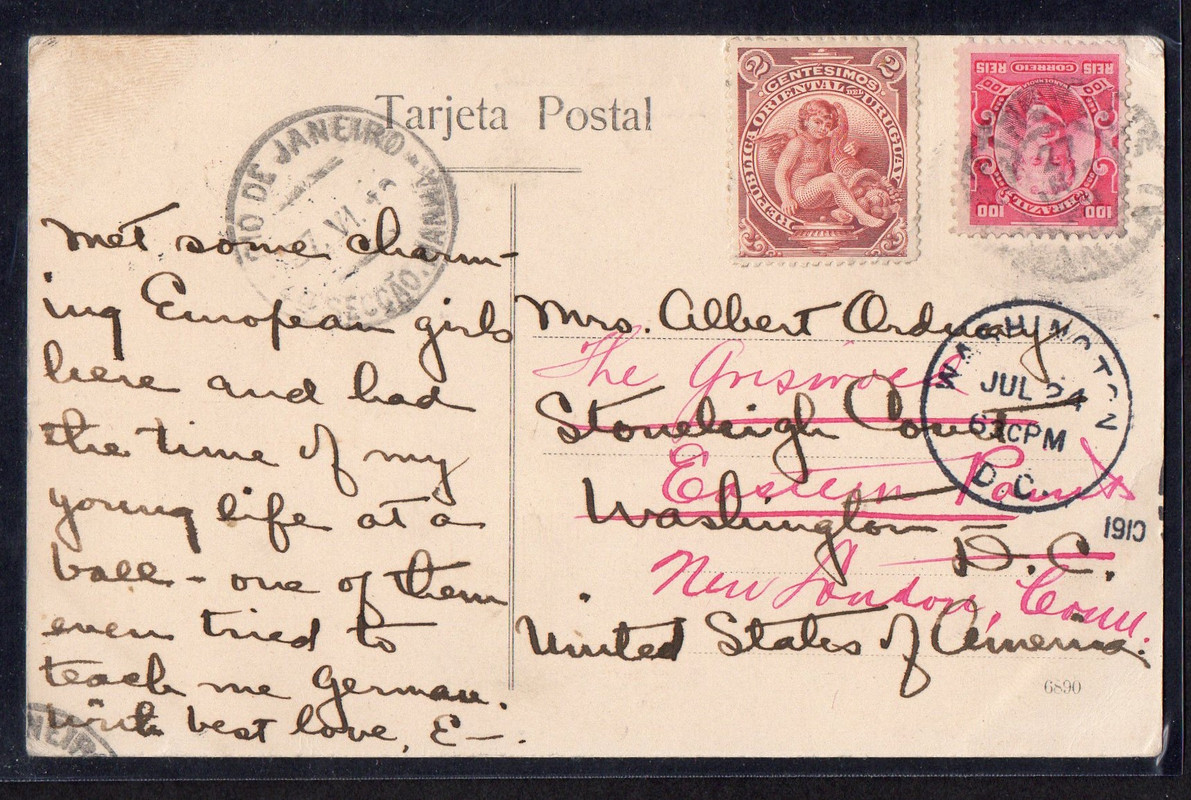 Tarjeta Postal
RIO DE JANEIRO
SECÇÃO
VI
2 CENTÉSIMOS 2
REPUBLICA ORIENTAL DEL URUGUAY
REIS CORREIO REIS
100 100
BRAZIL
100 100
Met some charm-
ing European girls
here and had
the time of my
young life at a
ball - one of them
even tried to
teach me German.
With best love, E-.
Mrs. Albert Ordway
The Griswold
Stoneleigh Court
Eastern Point
Washington
D. C.
New London, Conn.
United States of America.
WASHINGTON
JUL 24
PM
D.C.
1910
6890
NEIRO